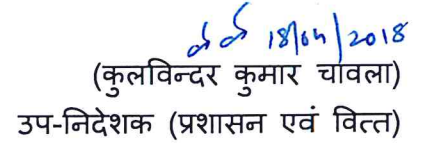 के के 18/04/2018
(कुलविन्दर कुमार चावला)
उप-निदेशक (प्रशासन एवं वित्त)